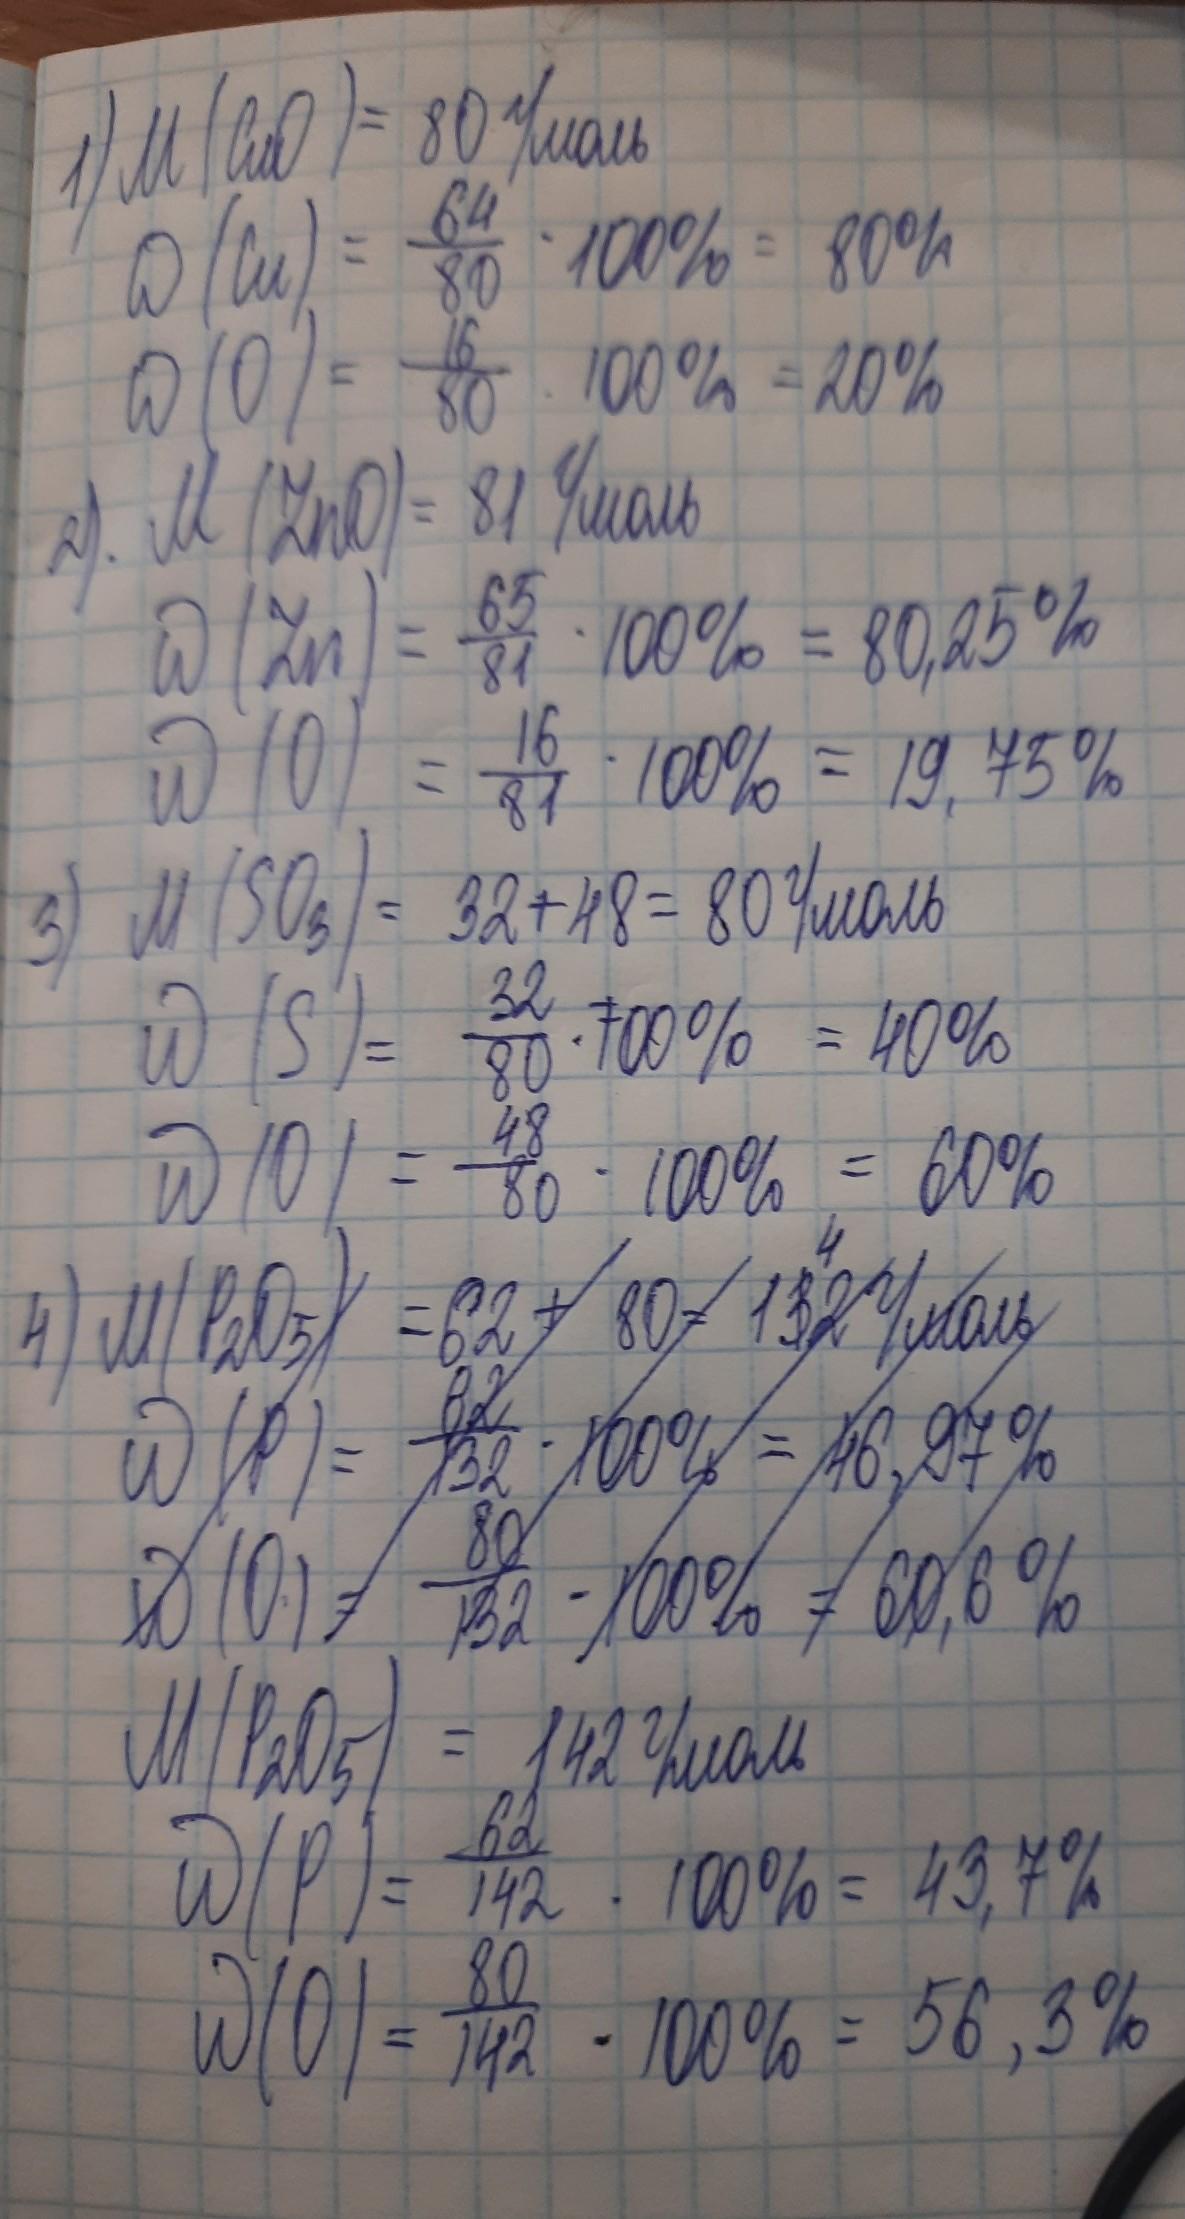 1) M(CuO) = 80 г/моль
ω(Cu) = 64/80 · 100% = 80%
ω(O) = 16/80 · 100% = 20%
2). M(ZnO) = 81 г/моль
ω(Zn) = 65/81 · 100% = 80,25%
ω(O) = 16/81 · 100% = 19,75%
3) M(SO₃) = 32+48 = 80 г/моль
ω(S) = 32/80 · 100% = 40%
ω(O) = 48/80 · 100% = 60%
4) M(P₂O₅) = 62 + 80 = 132 г/моль
4
ω(P) = 62/132 · 100% = 46,97%
ω(O) = 80/132 - 100% = 60,6%
M(P₂O₅) = 142 г/моль
ω(P) = 62/142 · 100% = 43,7%
ω(O) = 80/142 - 100% = 56,3%